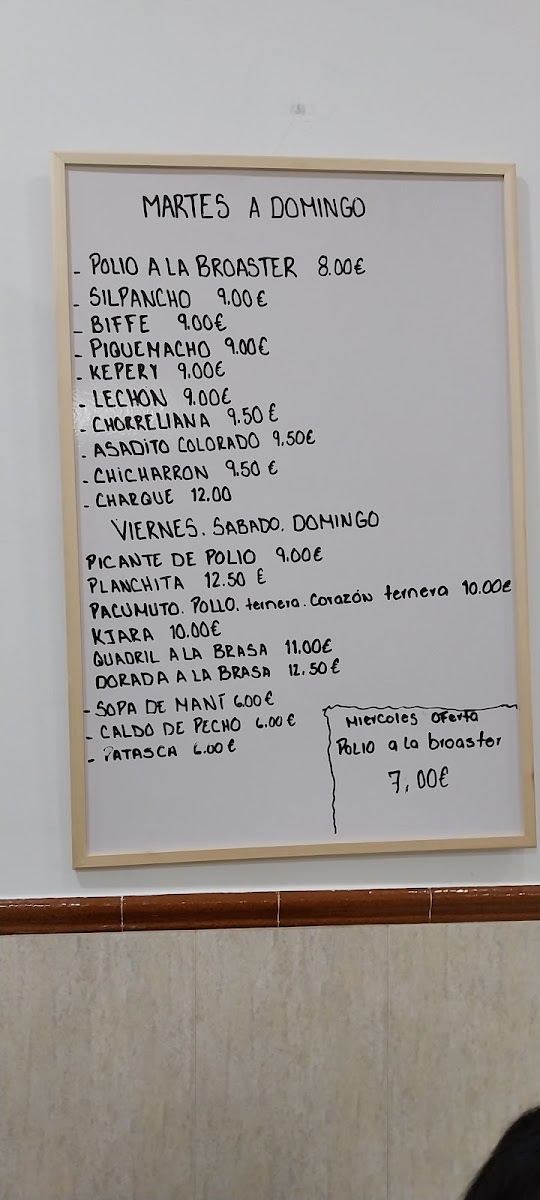 MARTES A DOMINGO
- POLIO A LA BROASTER 8.00€
- SILPANCHO 9.00€
- BIFFE 9.00€
- PIQUEMACHO 9.00€
- KEPERY 9.00€
- LECHON 9.00€
- CHORRELIANA 9.50€
- ASADITO COLORADO 9.50€
- CHICHARRON 9.50€
- CHARQUE 12.00
VIERNES. SABADO. DOMINGO
PICANTE DE POLIO 9.00€
PLANCHITA 12.50 €
PACUMUTO. POLLO. ternera. Corazón ternera 10.00€
KJARA 10.00€
QUADRIL A LA BRASA 11.00€
DORADA A LA BRASA 12.50€
- SOPA DE MANÍ 6.00€
- CALDO DE PECHO 6.00€
- PATASCA 6.00€
Miercoles oferta
Polio a la broaster
7,00€